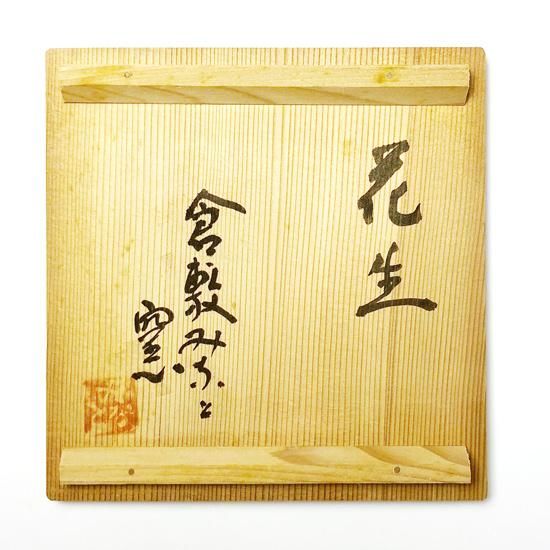 花生
倉敷みなと
窯